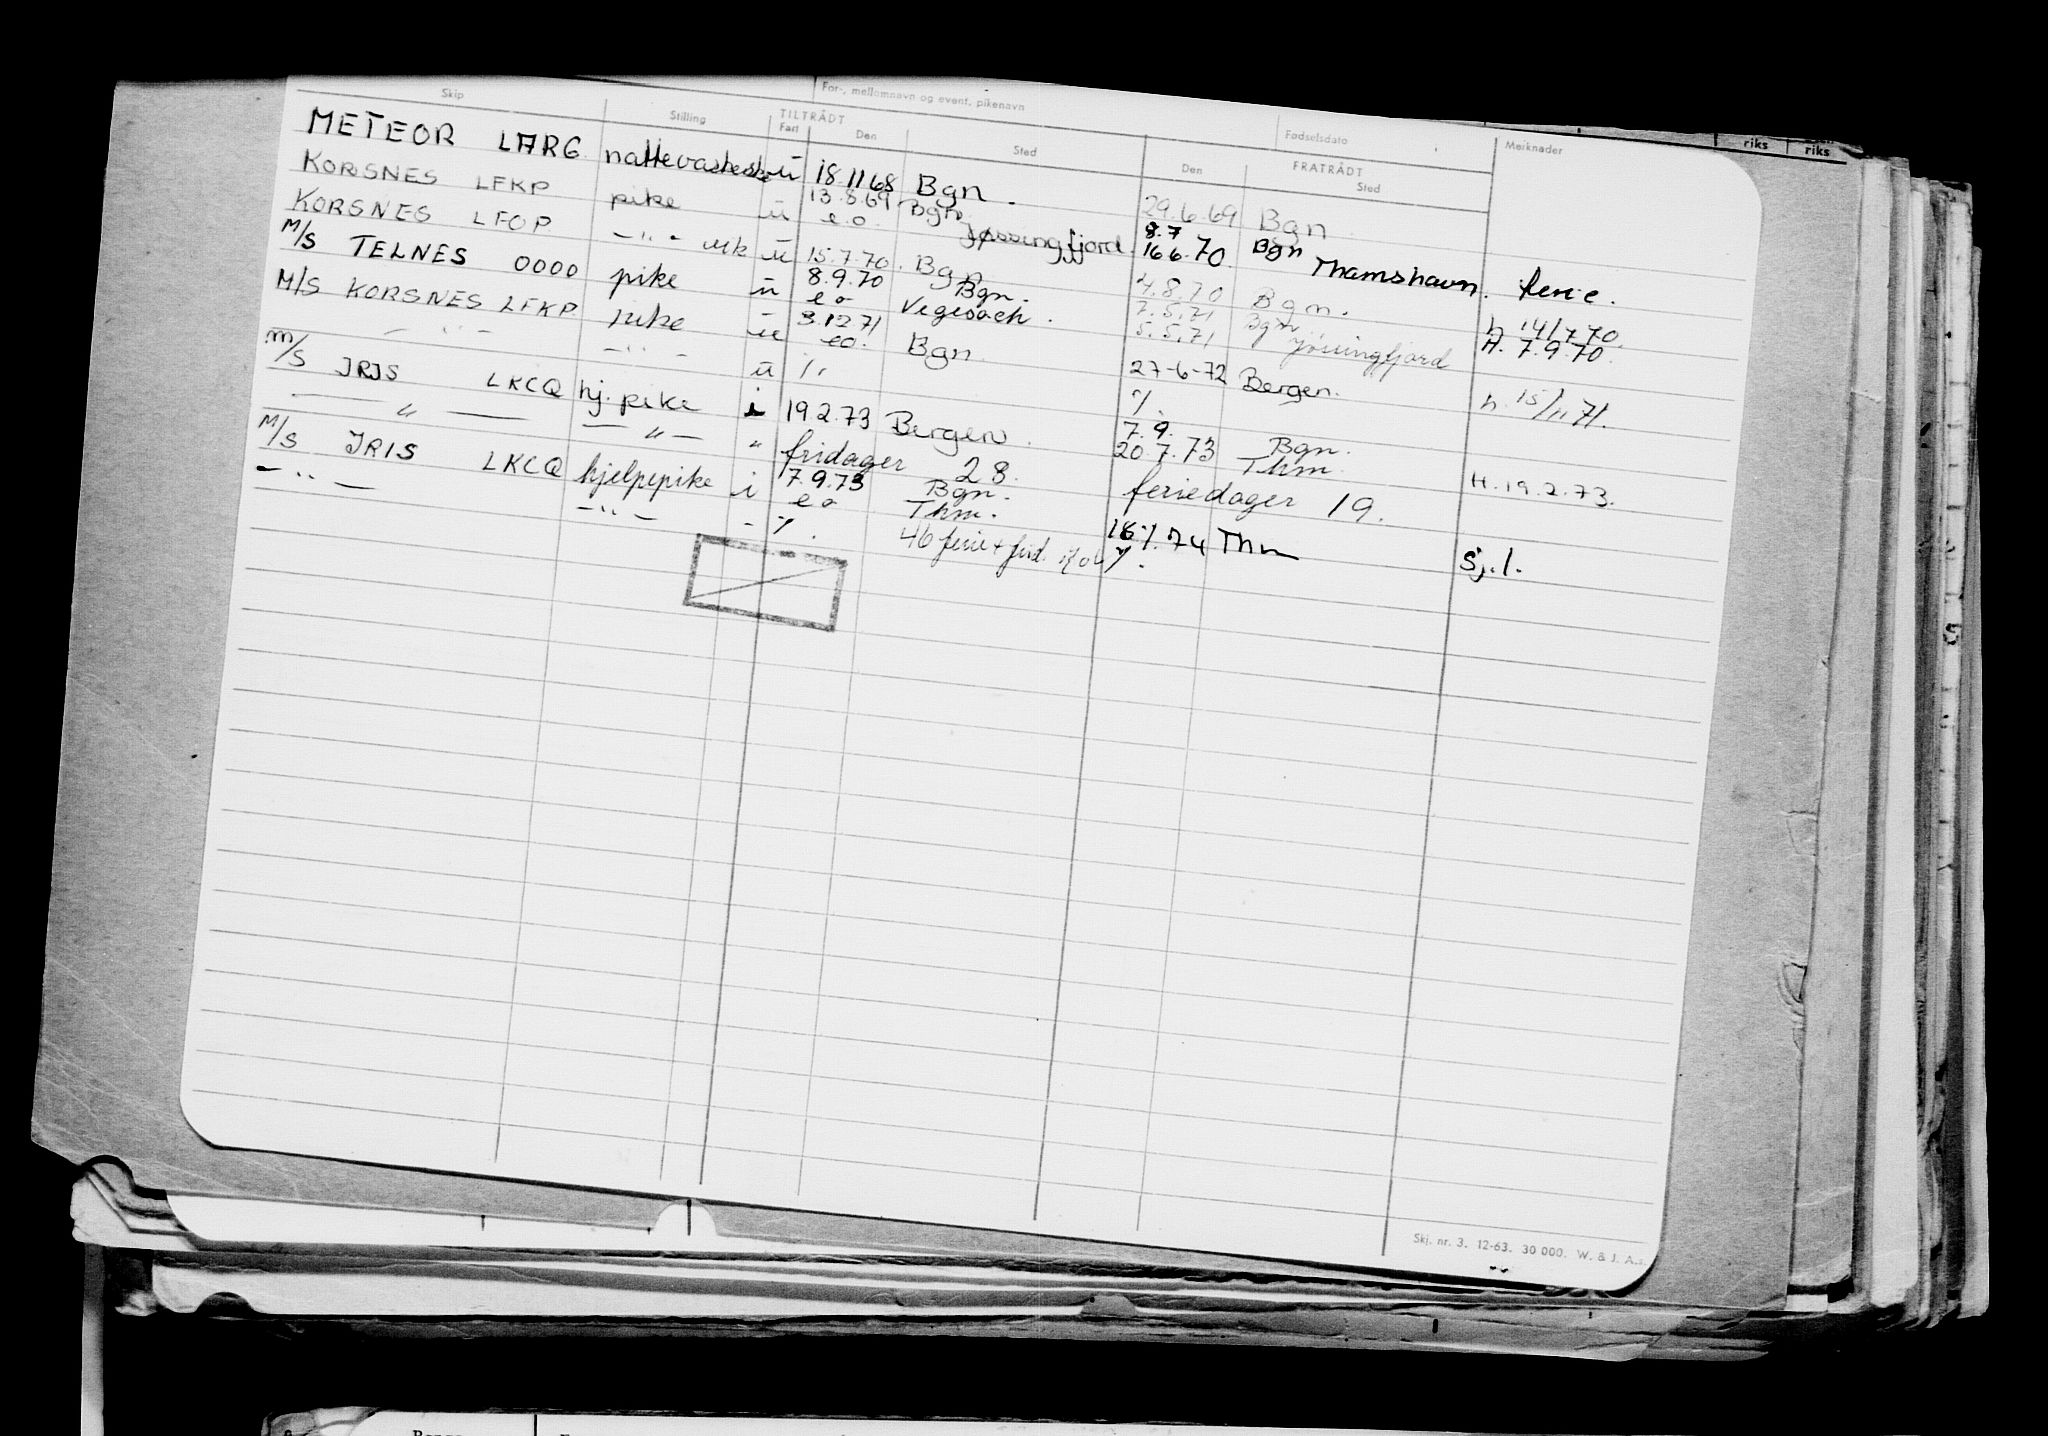 For-, mellomnavn og event. pikenavn
Fødselsdato
Skip Stilling TILTRÅDT Fart Den Sted FRATRÅDT Den Sted Merknader
riks riks
METEOR LARG ü 18.11.68 Bgn. 29.6.69 Bgn
KORSNES LFKP pike ü 13.8.69 e.o. Bgn. Jøssingfjord 8.7 16.6.70 Bgn Thamshavn. ferie.
KORSNES LFOP - " - ü 15.7.70. Bgn 4.8.70 Bgn. h 14/7.70.
M/S TELNES OOOO pike ü 8.9.70 e o Bgn. Vegesack. 7.5.71 5.5.71 Bgn Jøssingfjord H. 7.9.70.
M/S KORSNES LFKP pike ü 3.12.71 eo. Bgn. 27-6-72 Bergen. h. 15/11 71.
- " - - " - ü
M/S IRIS LKCQ hj. pike i 19.2.73 Bergen. 7.9. 20.7.73 Bgn. Thm. H. 19.2.73.
— " — — " — " fridager 28. feriedager 19.
M/S IRIS LKCQ hjelpepike i 7.9.73 e o Bgn. Thm. 74 Thm Sj.l.
- " - - " - - 46 ferie + frid.
Skj. nr. 3. 12-63. 30 000. W. & J. A.s.